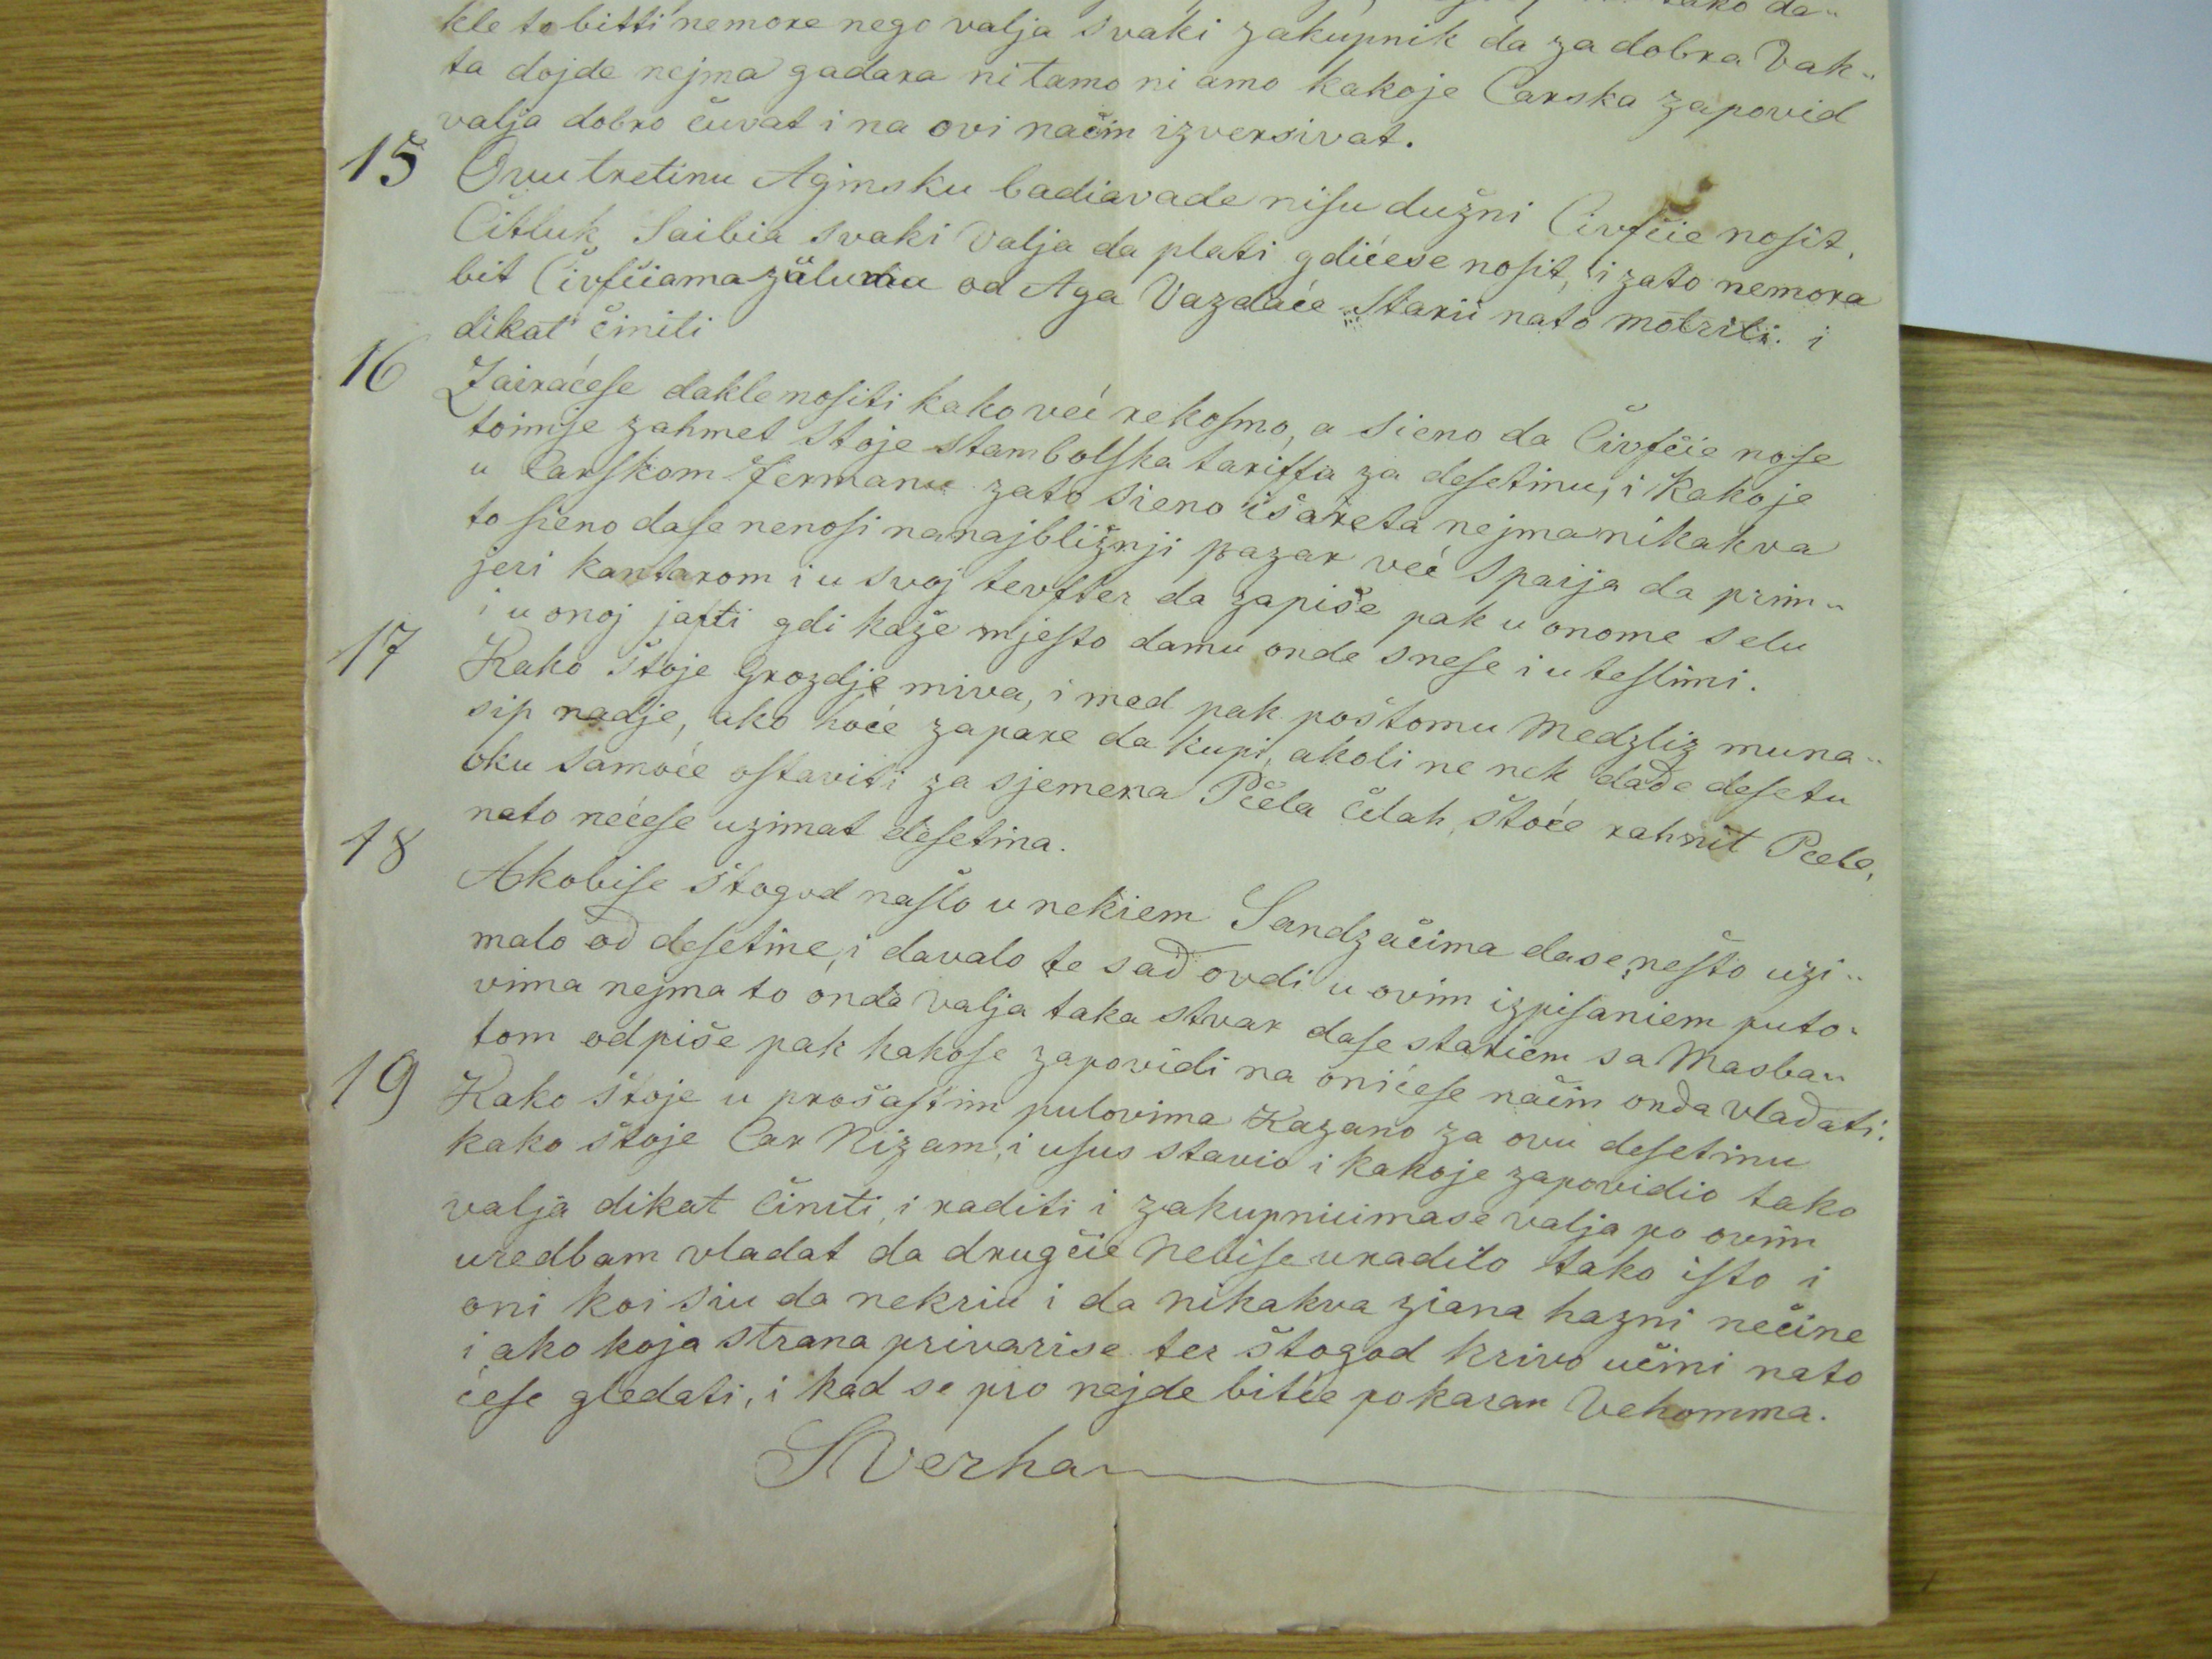 tako da„
kle to bitti nemore nego valja svaki zakupnik da za dobra Vak„
ta dojde nejma gadara ni tamo ni amo kakoje Carska zapovid
valja dobro čuvat i na ovi način izversivat.
15 Ovu tretinu Aginsku badiavade nisu dužni Čivfčie nosit,
Čitluk, Saibia svaki Valja da plati gdićese nosit, i zato nemora
bit Čivfčiama zuluma od Aga Vazdaće Starii nato motriti i
dikat činiti
16 Zairaćese dakle nositi kako već rekosmo, a sieno da Čivfčie nose
toimje zahmet stoje stambolska tariffa za desetinu, i kakoje
u Carskom fermanu zato sieno išareta nejma nikakva
to sieno dase nenosi na najbližnji pazar već Spaija da prim„
jeri kantarom i u svoj tevfter da zapiše pak u onome selu
i u onoj jafti gdi kaže mjesto damu onde snese i u teslimi.
17 Kako štoje Grozdje miva, i med pak poštomu Medzliz muna„
sip nadje, ako hoće zapare da kupi, akoli ne nek dade desetu
oku samoće ostaviti za sjemena Pčela čelah, štoće rahnit Pcele,
nato nećese uzimat desetina.
18 Akobise štogod našlo u nekiem Sandzačima dase nešto uzi„
malo od desetine, i davalo te sad ovdi u ovim izpisaniem puto„
vima nejma to onda valja taka stvar dase stariem sa Masba„
tom odpiše pak kakose zapovidi na onićese način onda vladati.
19 Kako štoje u prošastim putovima Kazano za ovu desetinu
kako štoje Car Nizam, i usus stavio i kakoje zapovidio tako
valja dikat činiti, i raditi i zakupnicimase valja po ovim
uredbam vladat da drugčie nebise uradilo tako isto i
oni koi siu da nekriu i da nikakva ziana hazni nečine
i ako koja strana privarise ter štogod krivo učini nato
ćese gledati, i kad se pro najde bitće pokaran Vehomma.
SVerha